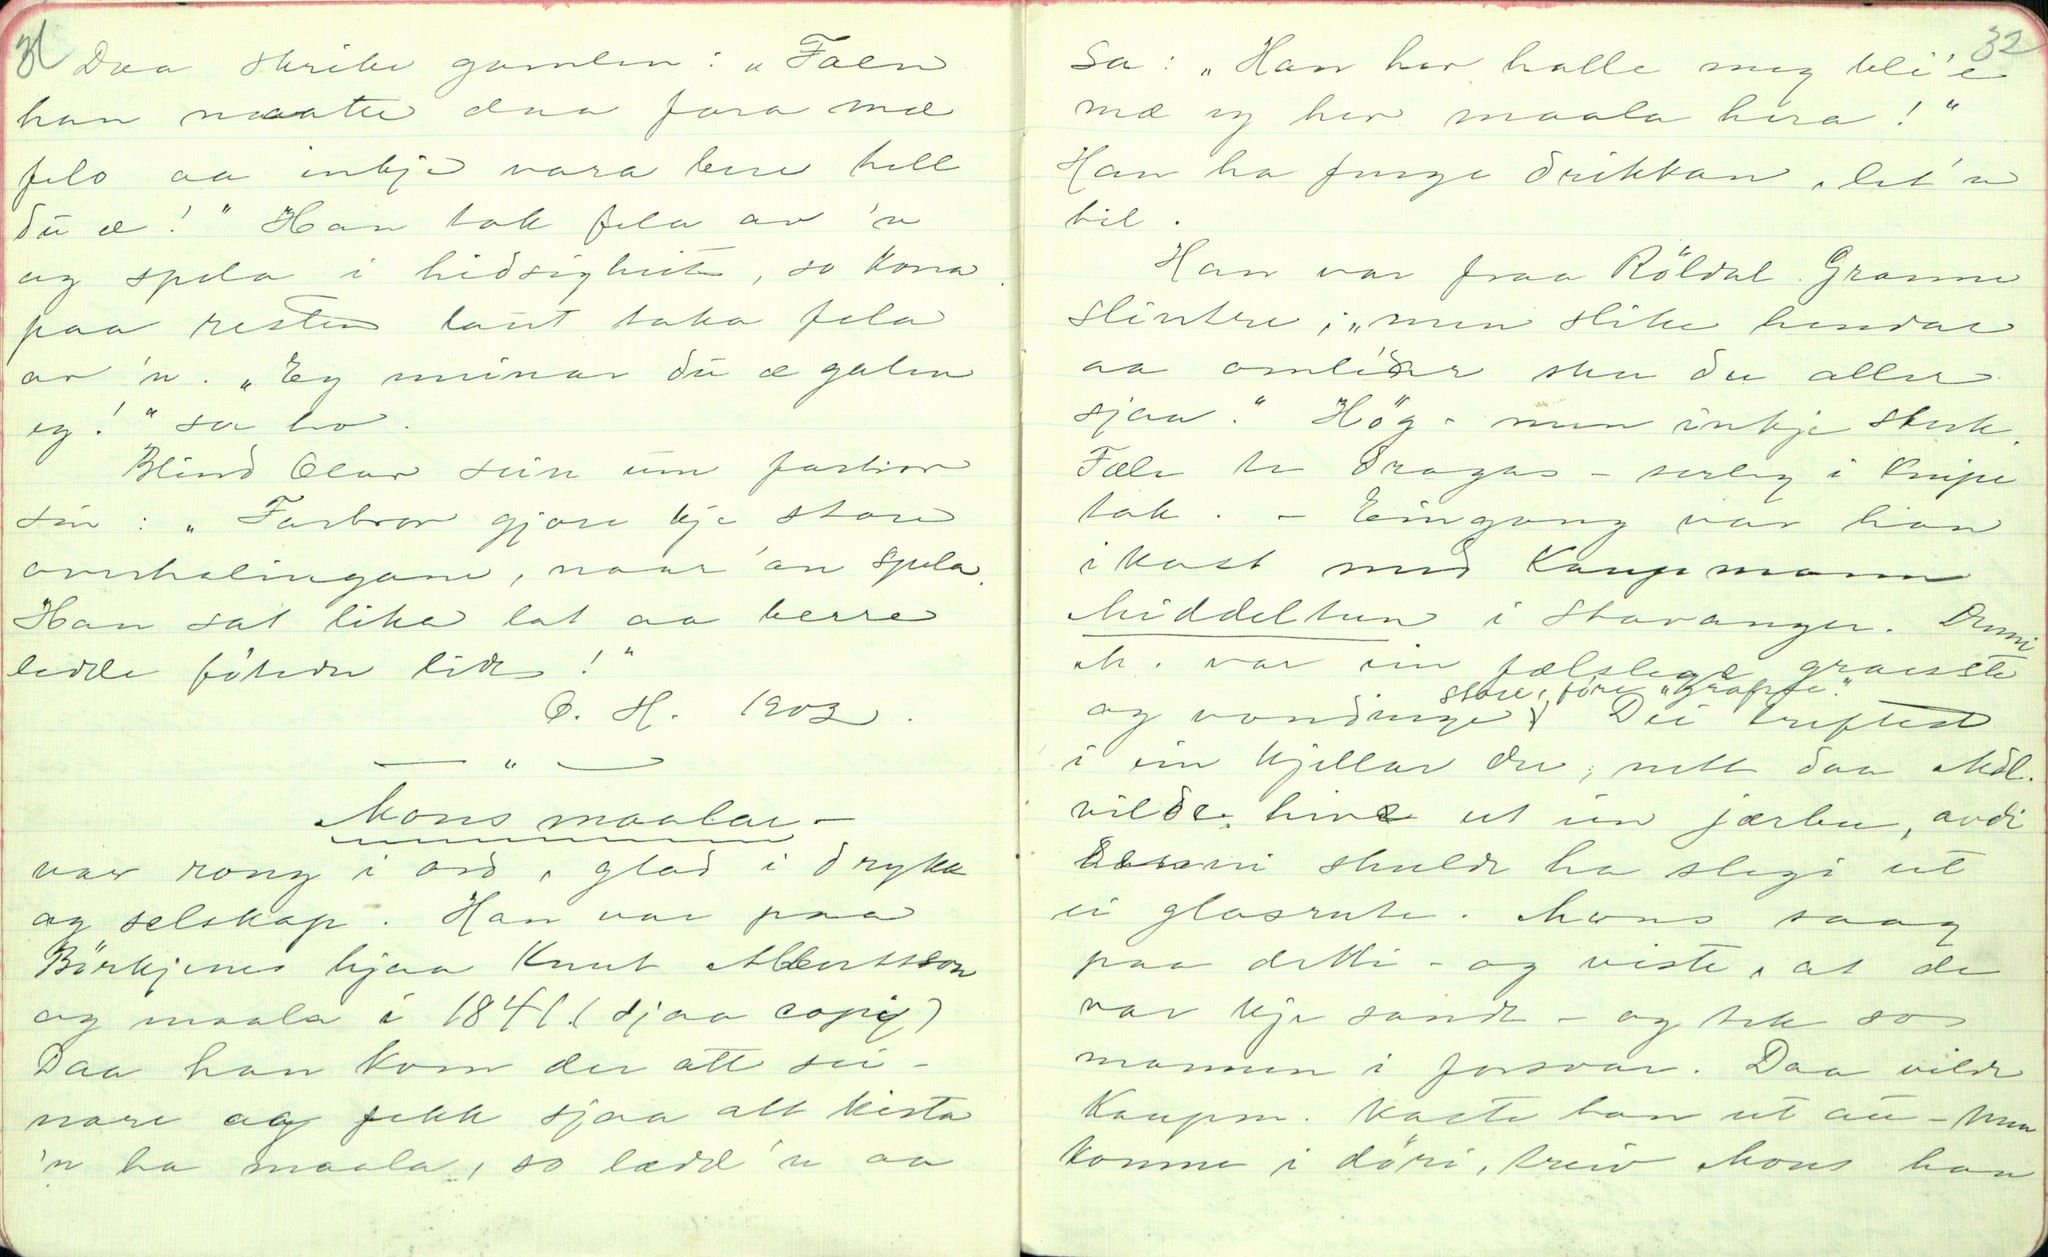 31
Daa skrike gamlen: „Faen
han maatte daa fara mæ
felo aa inkje vara bere hell
du æ!" Han tok fela av 'n
og spela i hidsigheit, so kona
paa resten laut taka fela
av 'n. „Eg meinar du æ galen
eg!" sa ho.
Blind Olav sein um farbror
sin: „Farbror gjore kje store
overhalingane, naar 'an spela.
Han sat lika lat aa berre
ledde föteden litt!"
O. H. 1903.
— „ —
Mons maalar –
var rong i ord, glad i drykk
og selskap. Han var paa
Börkjenes hjaa Knut Albertsson
og maala i 1841. (sjaa copiy)
Daa han kom der att sei-
nare og fekk sjaa att kista
'n ha maala, so lædd 'n aa
32
sa: „Han hev halle meg bli'e
mæ eg hev maala hera!"
Han ha fenge drikkan, let 'n
til.
Han var fraa Röldal. Granne
slintre; „men slike hendar
aa omlider ska du aller
sjaa." Hög - men inkje sterk.
Fæle te dragas – serleg i knipe
tak. – Eingong var han
i kast med Kaupmann
Middeltun i Stavanger. Denni
M. var ein fælslege graeste
og vondinge store, före „Grapse."
Dei treftest
i ein kjellar der, nett daa Mdl.
vilde hive ut ein jærbu, avdi
denni skulde ha slegi ut
ei glasrute. Mons saag
paa detti – og viste, at de
var kje sandt – og tok so
mannen i forsvar. Daa vilde
Kaupm. kaste han ut au – men
komne i döri, treiv Mons han